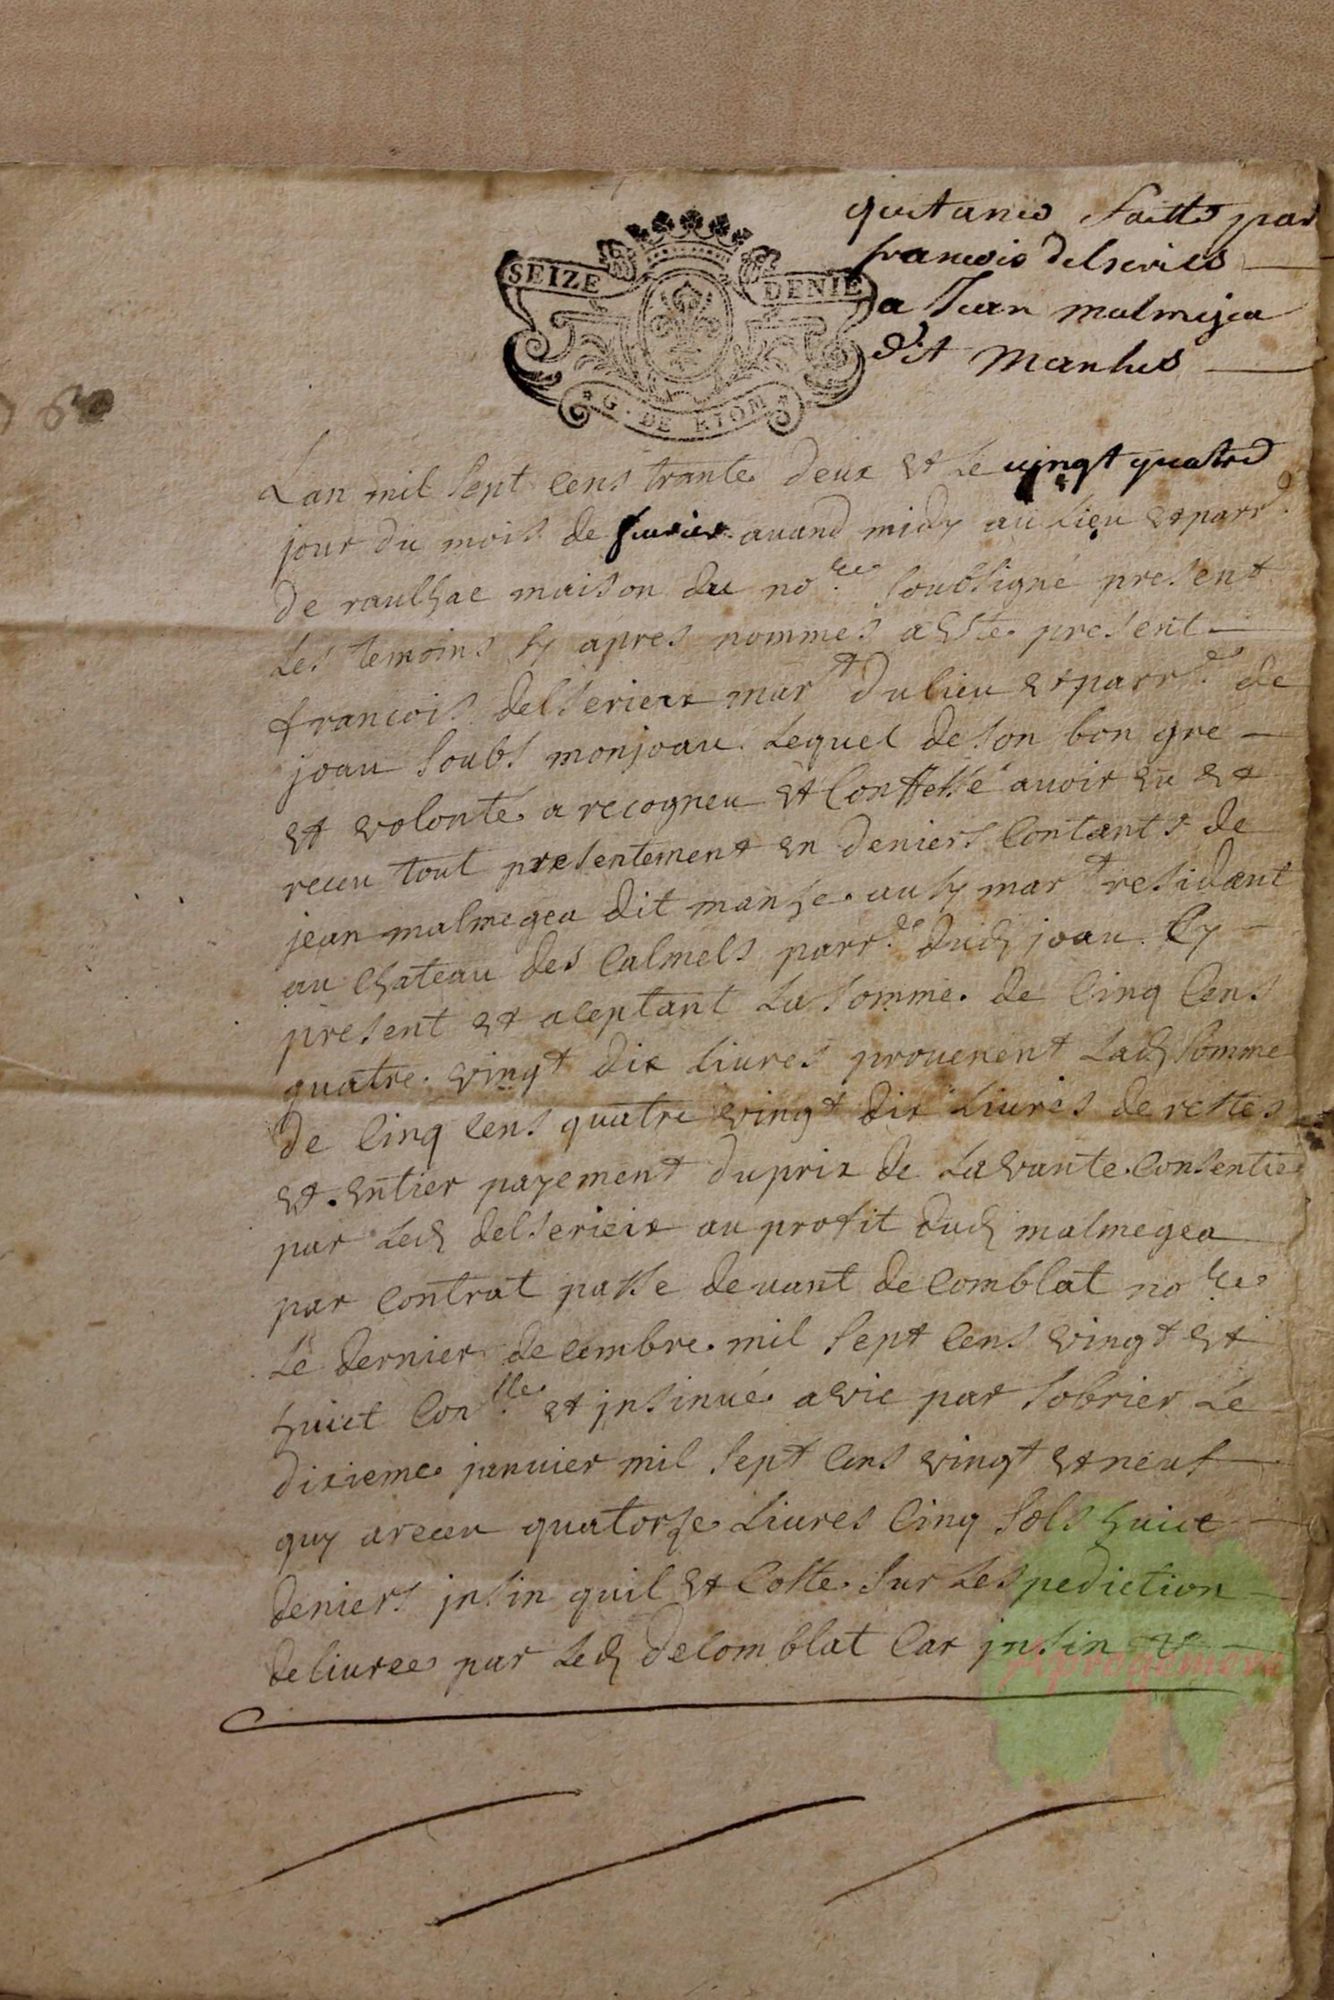 quitance faitte par
francois delseries
a Jean malmejea
dit Manhes
SEIZE DENIE
G. DE RIOM
Lan mil sept cens trante deux et le vingt quatre
jour du mois de fevrier avand midy au lieu et parr.e
de raulhac maison du no.re soubsigné present
les temoins sy apres nommes a este present
francois delserieix mar.t du lieu et parr.e de
joau soubs monjoau lequel de son bon gre
et volonte a recogneu et confessé avoir eu et
receu tout presentement en deniers contants de
jean malmegea dit manhe aussy mar.t residant
au chateau des calmels parr.e dud joau cy
present et aceptant la somme de cinq cens
quatre vingt dix livres provenent lad somme
de cinq cens quatre vingt dix livres de restes
et entier payement du prix de la vante consentie
par led delserieix au profit dud malmegea
par contrat passe devant de comblat no.re
le dernier decembre mil sept cens vingt et
huict con.lle et jnsinué a vic par sobrier le
dixieme janvier mil sept cens vingt et neuf
quy a receu quatorze livres cinq sols huict
deniers jnsin quil et coste sur lespediction
delivree par led decomblat car jnsin
Aprogemere